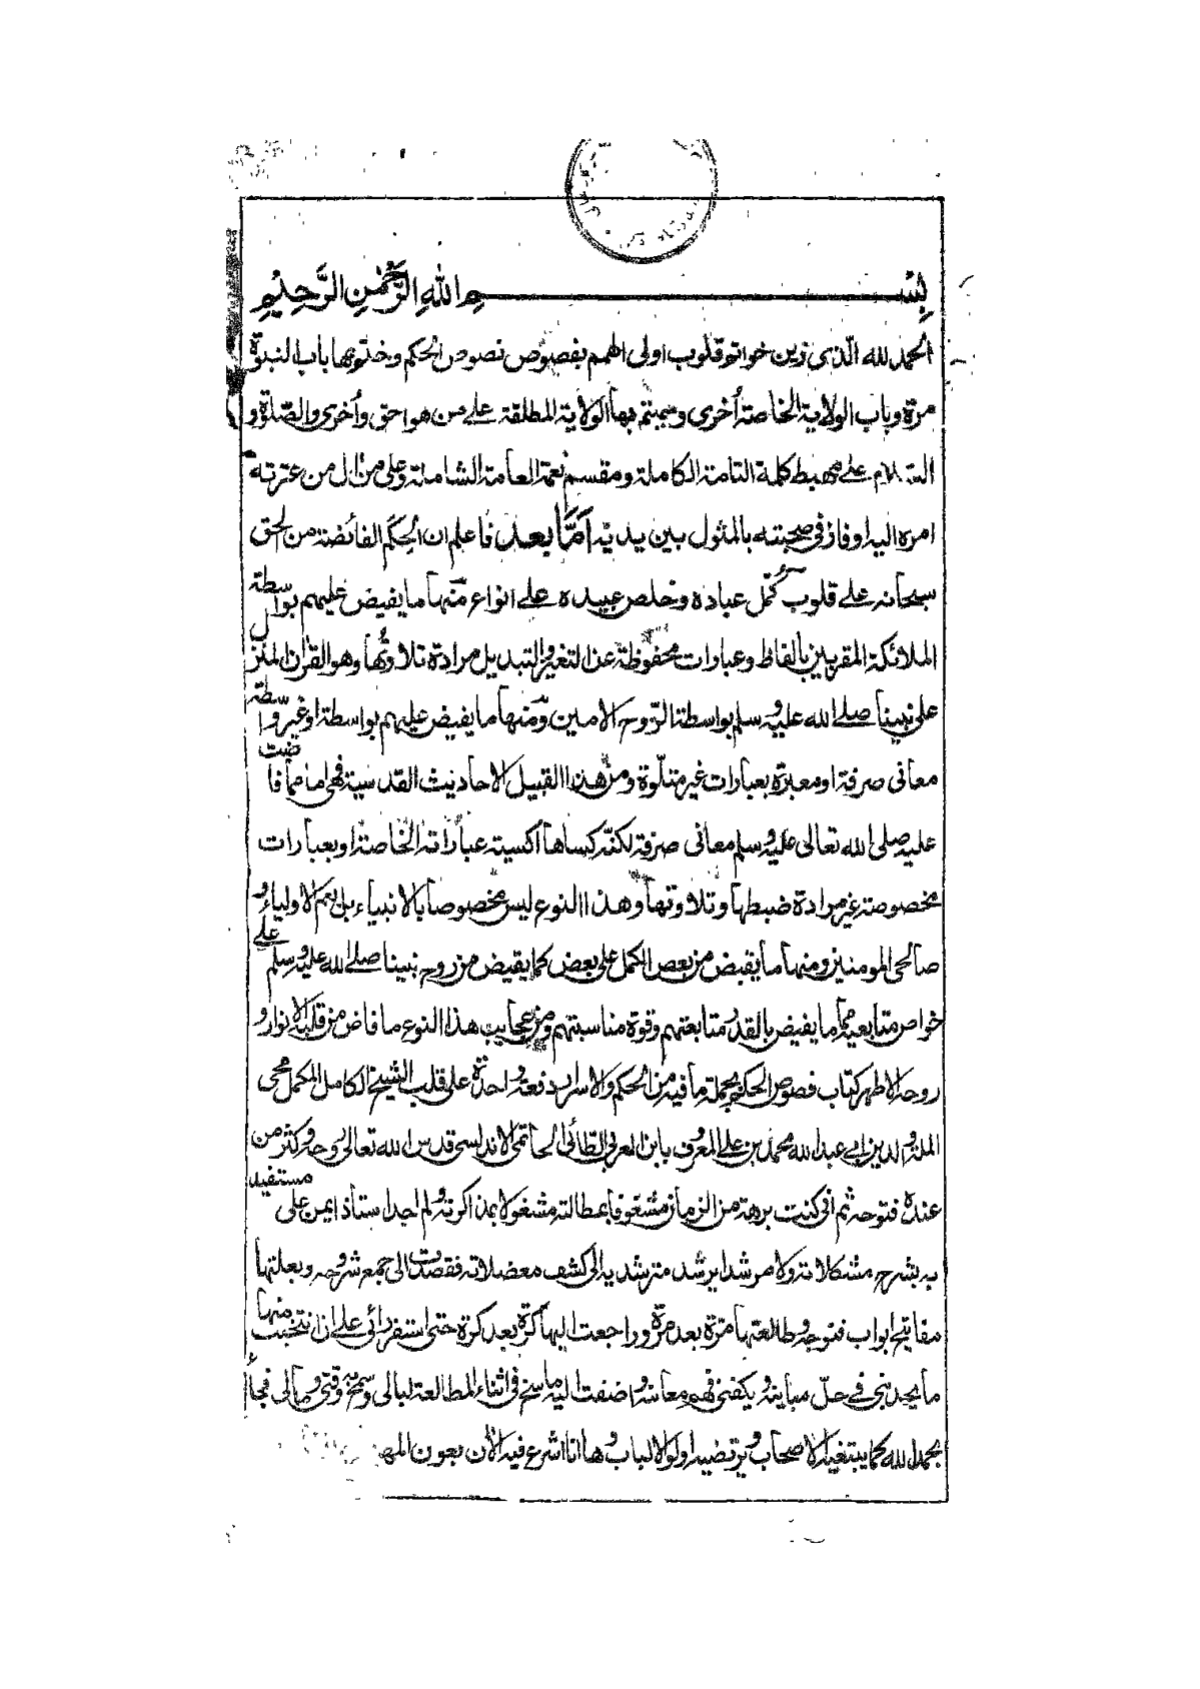 بِسْمِ اللهِ الرَّحْمٰنِ الرَّحِيْمِ
الحمد لله الّذى زين خواتم قلوب اولى الهمم بفصوص نصوص الحكم وختم بها باب النبوة
مرة وباب الولاية الخاصة أخرى وسيختم بها الولاية المطلقة على من هو احق وأخرى والصّلوة و
السلام على مهبط كلمة التامة الكاملة ومقسم نعمة العامة الشاملة وعلى من ال من عترته
امره اليه او فاز فى صحبته بالمثول بين يديه أمَّا بعد فاعلم ان الحِكَم الفائضة من الحق
سبحانه على قلوب كُمّل عباده وخلص عبيده على انواع منها ما يفيض عليهم بواسطة
الملائكة المقربين بالفاظ وعبارات محفوظة عن التغير والتبديل مرادة تلاوتُها وهو القران المنزل
على نبينا صلى الله عليه وسلم بواسطة الرّوح الامين ومنها ما يفيض عليهم بواسطة او غير واسطة
معانى صرفة او معبرة بعبارات غير متلوّة ومن هذا القبيل الاحاديث القدسية فهى اما ما فاضت
عليه صلى الله تعالى عليه وسلم معانى صرفة لكنّه كساها أكسية عباراته الخاصة او بعبارات
مخصوصة غير مرادة ضبطها وتلاوتها وهذا النوع ليس مخصوصا بالانبياء بل يعم الاولياء و
صالحى المومنين ومنها ما يفيض من بعض الكمل على بعض كما يفيض من روح نبينا صلى الله عليه وسلم على
خواص متابعيه مما يفيض بالقدر متابعتهم وقوة مناسبتهم ومن عجايب هذا النوع ما فاض من قلبه الانوار و
روحه الاطهر كتاب فصوص الحكم بجملة ما فيه من الحكم والاسرار دفعة واحدة على قلب الشيخ الكامل المكمل محى
الملة والدين ابى عبد الله محمد بن على المعروف بابن العربى الطائى الحاتمى الاندلسى قدس الله تعالى روحه وكثر من
عنده فتوحه ثم انى كنت برهة من الزمان مشغوفا بمطالعته مشغولا بمذاكرته ولم اجد استاذ ايمن على مستفيد
به بشرح مشكلاته ولا مرشدا يرشد مترشديه الى كشف معضلاته فقصدت الى جمع شروحه وبعلتها
مفاتيح ابواب فتوحه وطالعتها مرّة بعد مرّة وراجعت اليها كرّة بعد كرة حتى استقر رائى على ان انتخب منها
ما يجدنى فى حلّ مبانيه ويكفنى فهم معانيه واضفت اليه ما سخ فى اثناء المطالعة لبالى وسمح به وقتى ومالى فجأ
بحمد لله كما يبتغيه الاصحاب ويرتضيه اولو الالباب وها انا اشرع فيه الان بعون الله